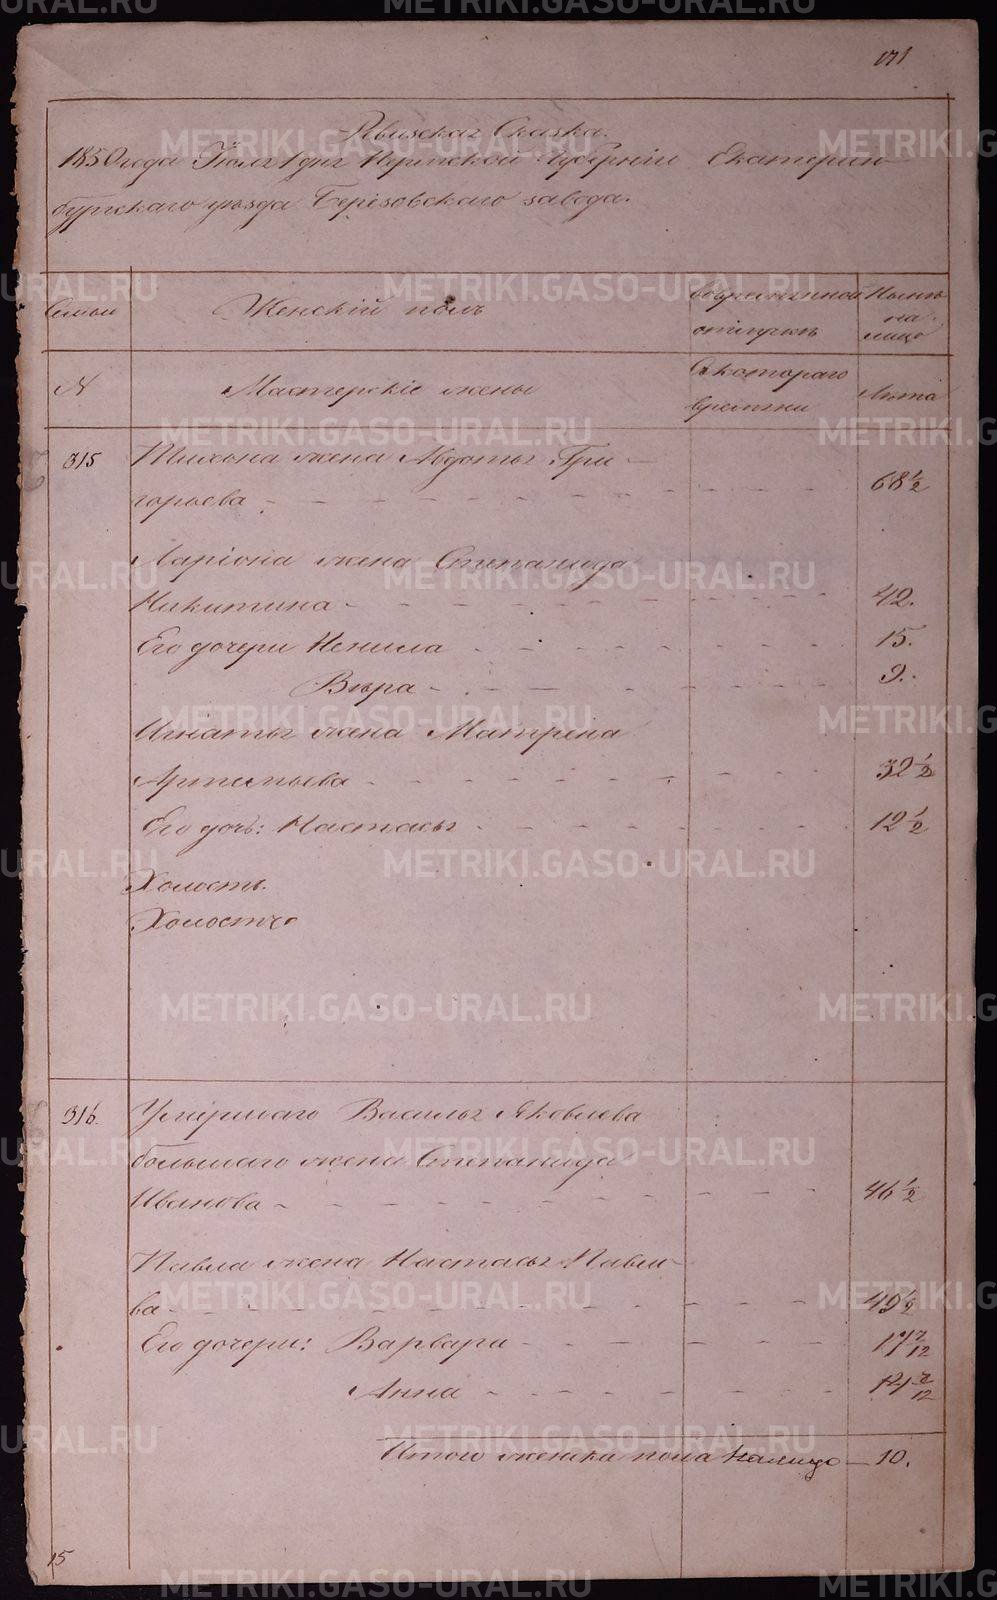 171
Ревизская Сказка.
1850 года Июля 1 дня Пермской Губернии Екатерин-
бургскаго уезда Березовскаго завода.
Семьи
Женскій полъ
во временной отлучкѣ
Нынѣ на лицо
№
Мастерскіе жены
Съ котораго времени
Лѣта
315
Тихона жена Авдотья Гри-
горьева 68 1/2
Ларіона жена Степанида
Никитина 42.
Его дочери Ненила 15.
Вѣра 9.
Игнатья жена Матрена
Артемьева 32 1/2
Его дочь: Настасья 12 1/2
Холостъ.
Холостъ
316.
Умершаго Василья Яковлева
большаго жена Степанида
Иванова 46 1/2
Павла жена Настасья Павло-
ва 49 1/2
Его дочери: Варвара 17 7/12
Анна
Итого женска пола налицо 10.
15
METRIKI.GASO-URAL.RU